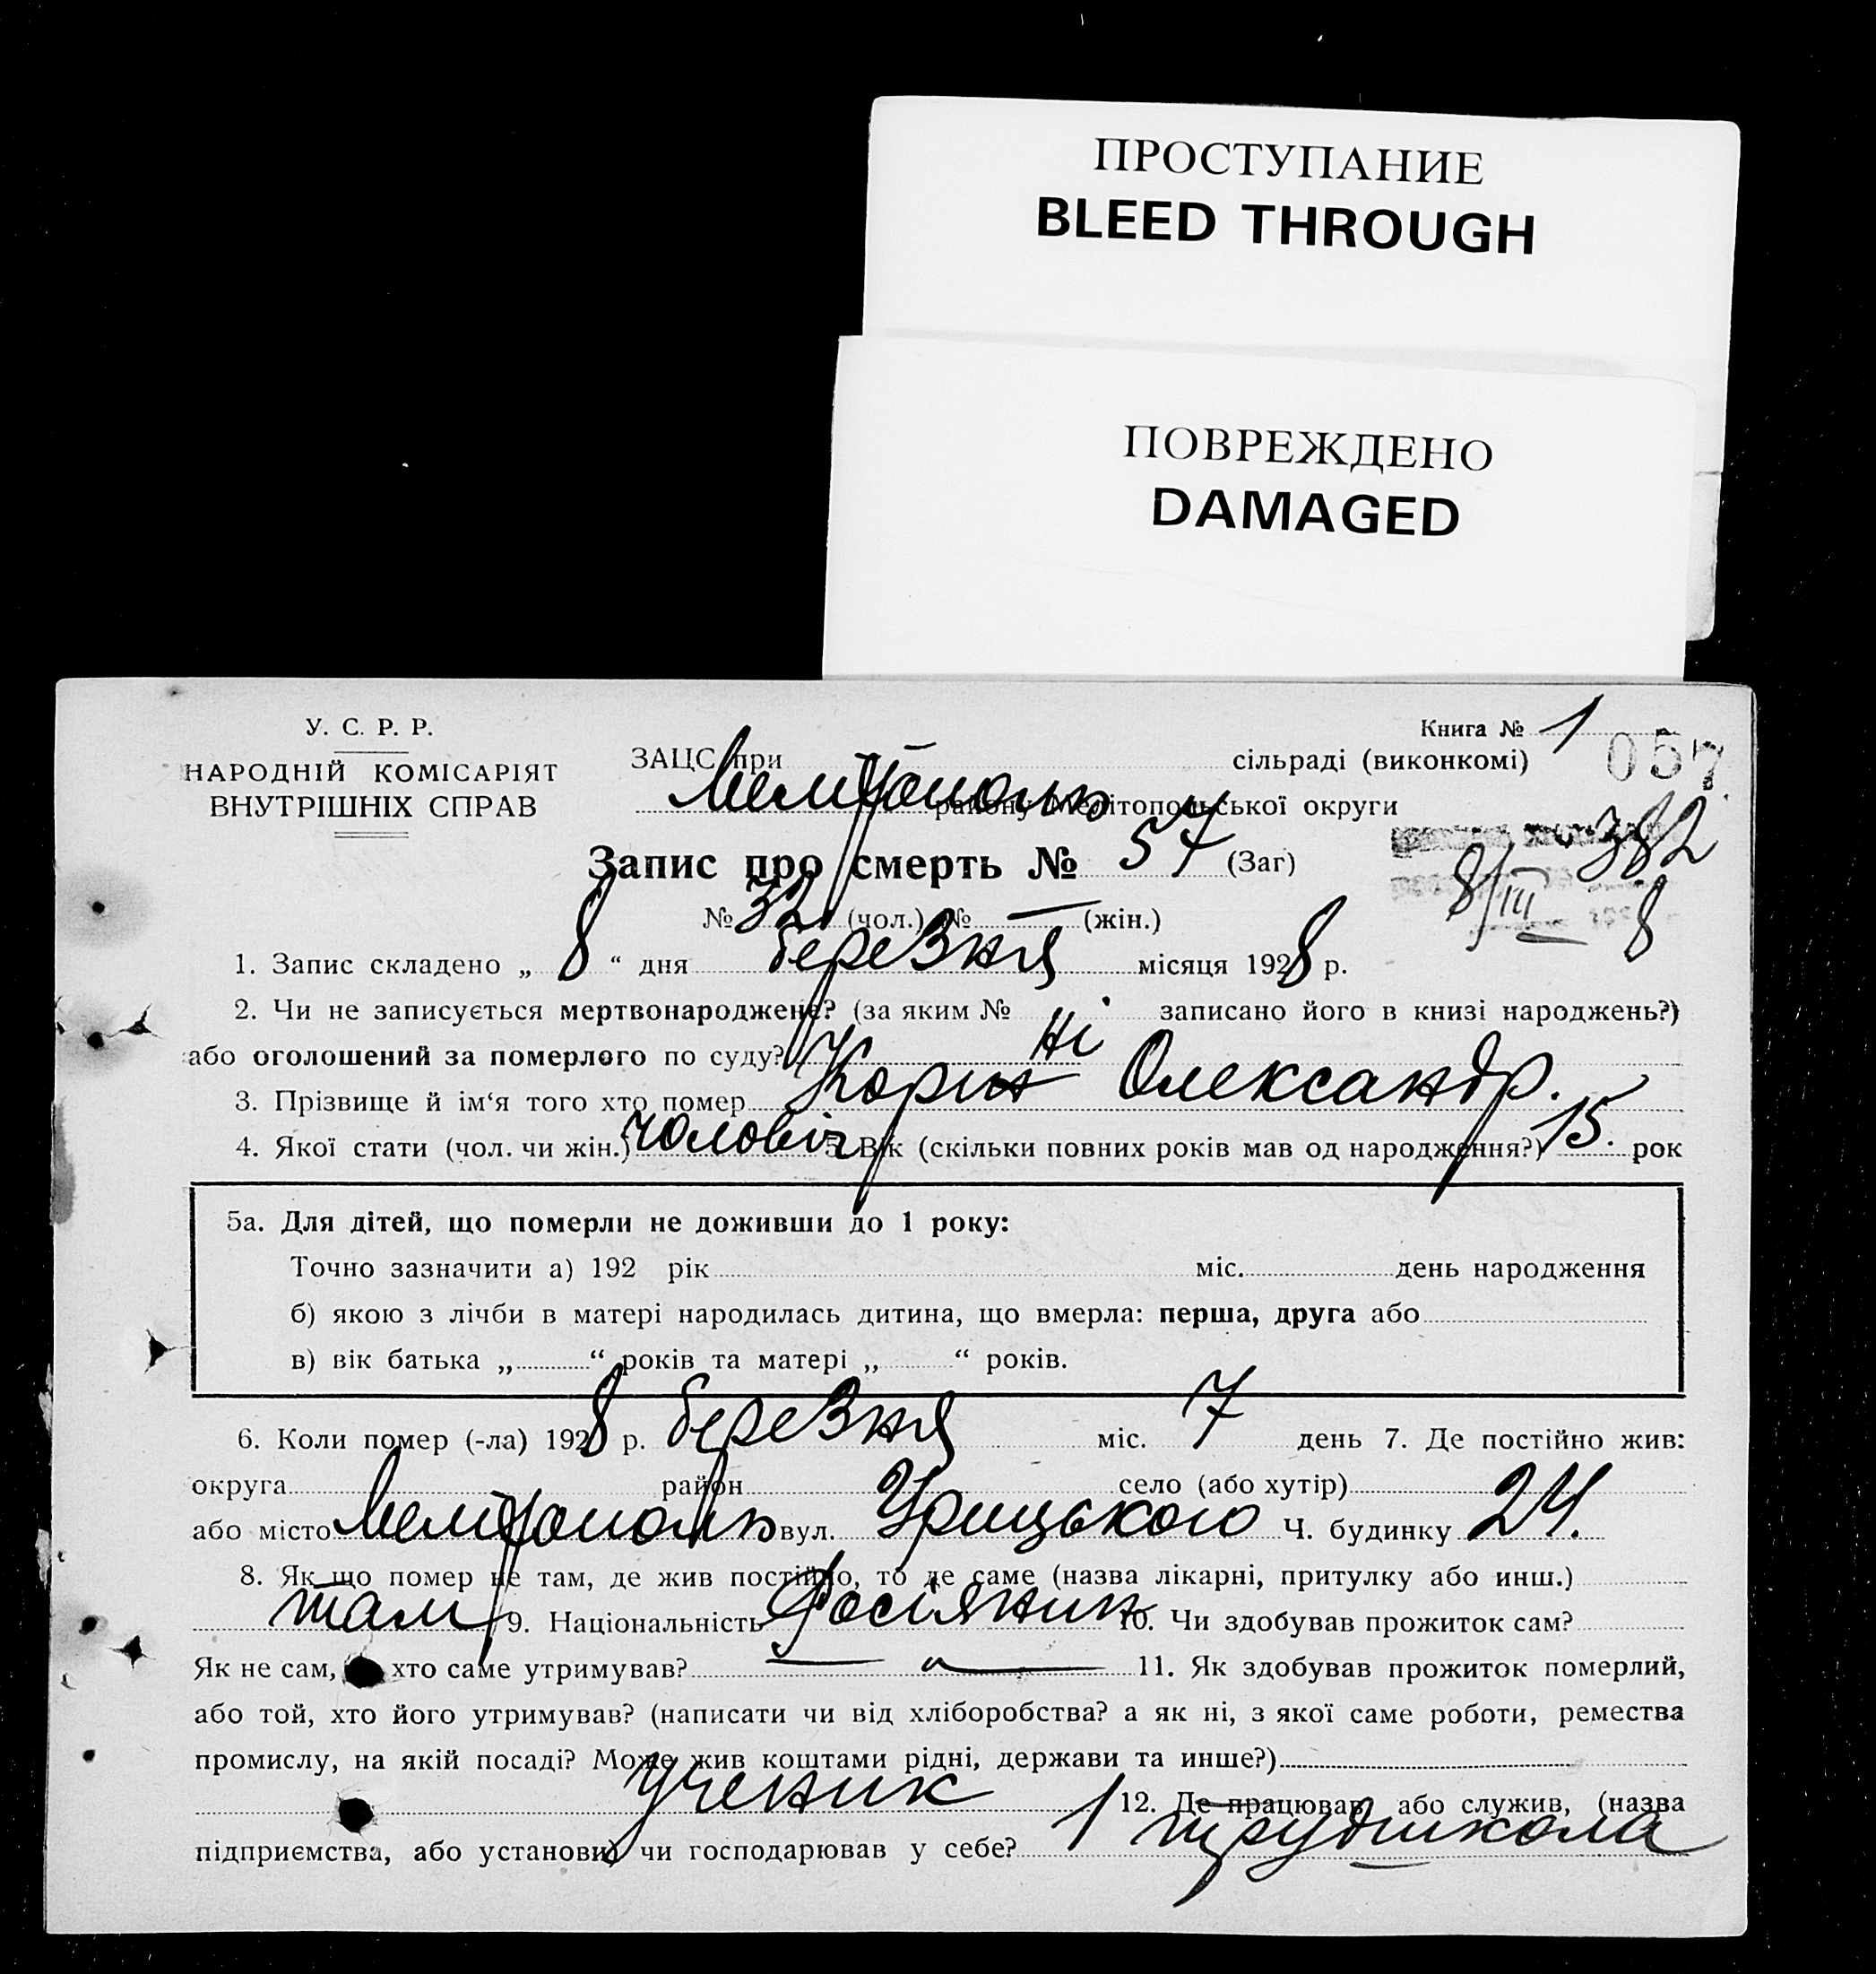 ПРОСТУПАНИЕ
BLEED THROUGH
ПОВРЕЖДЕНО
DAMAGED
У. С. Р. Р.
НАРОДНІЙ КОМІСАРІЯТ
ВНУТРІШНІХ СПРАВ
Книга № 1
057
ЗАЦС при сільраді (виконкомі)
Мелітополь району Мелітопольської округи
382
Запис про смерть № 57 (Заг)
8/III 8
№ 32 (чол.) № — (жін.)
1. Запис складено „ 8 “ дня березня місяця 1928 р.
2. Чи не записується мертвонароджене? (за яким № записано його в книзі народжень?)
або оголошений за померлого по суду? Ні
3. Прізвище й ім‘я того хто помер Корин Олександр.
4. Якої стати (чол. чи жін.) чоловіч 5. Вік (скільки повних років мав од народження?) 15. рок
5а. Для дітей, що померли не доживши до 1 року:
Точно зазначити а) 192 рік міс. день народження
б) якою з лічби в матері народилась дитина, що вмерла: перша, друга або
в) вік батька „ “ років та матері „ “ років.
6. Коли помер (-ла) 1928 р. березня міс. 7 день 7. Де постійно жив:
округа район село (або хутір)
або місто Мелітополь вул. Урицького Ч. будинку 24.
8. Як що помер не там, де жив постійно, то де саме (назва лікарні, притулку або инш.)
там 9. Національність росіянин 10. Чи здобував прожиток сам?
Як не сам, хто саме утримував? — „ — 11. Як здобував прожиток померлий,
або той, хто його утримував? (написати чи від хліборобства? а як ні, з якої саме роботи, ремества
промислу, на якій посаді? Може жив коштами рідні, держави та инше?)
ученик 12. Де працював або служив, (назва
підприємства, або установи) чи господарював у себе? 1 трудшкола